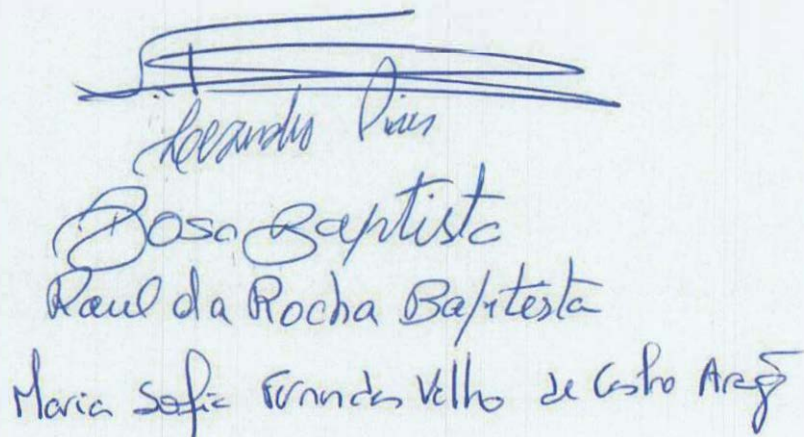 Leandro Pires
Rosa Baptista
Raul da Rocha Baptista
Maria Sofia Fernandes Velho de Castro Aragão